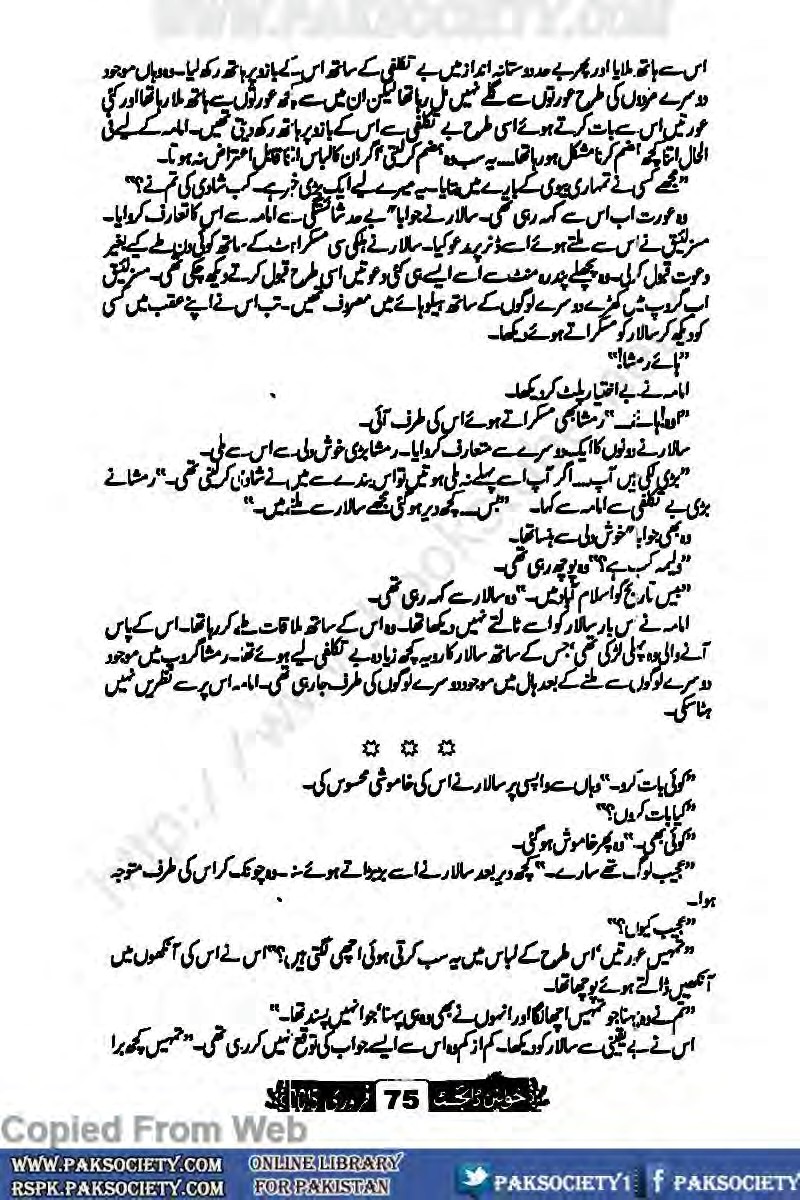 WWW.PAKSOCIETY.COM
اس سے ہاتھ ملایا اور پھر بے حد دوستانہ انداز میں بے تکلفی کے ساتھ اس کے بازو پر ہاتھ رکھ لیا۔ وہ وہاں موجود
دوسرے مردوں کی طرح عورتوں سے گلے نہیں مل رہا تھا لیکن ان میں سے کچھ عورتوں سے ہاتھ ملا رہا تھا اور کئی
عورتیں اس سے بات کرتے ہوئے اسی طرح بے تکلفی سے اس کے بازو پر ہاتھ رکھ دیتی تھیں۔ امامہ کے لیے فی
الحال اتنا کچھ ہضم کرنا مشکل ہو رہا تھا۔۔۔ یہ سب وہ ہضم کر لیتی اگر ان کا لباس اتنا قابل اعتراض نہ ہوتا۔
”مجھے کسی نے تمہاری بیوی کے بارے میں بتایا۔ یہ میرے لیے ایک بڑی خبر ہے۔ کب شادی کی تم نے؟“
وہ عورت اب اس سے کہہ رہی تھی۔ سالار نے جواباً بے حد شائستگی سے امامہ سے اس کا تعارف کروایا۔
مسز لئیق نے اس سے ملتے ہوئے اسے ڈنر پر مدعو کیا۔ سالار نے ہلکی سی مسکراہٹ کے ساتھ کوئی دن طے کیے بغیر
دعوت قبول کر لی۔ وہ پچھلے پندرہ منٹ سے اسے ایسے ہی کئی دعوتیں اسی طرح قبول کرتے دیکھ چکی تھی۔ مسز لئیق
اب گروپ میں کھڑے دوسرے لوگوں کے ساتھ ہیلو ہائے میں مصروف تھیں۔ تب اس نے اپنے عقب میں کسی
کو دیکھ کر سالار کو مسکراتے ہوئے دیکھا۔
”ہائے رمشا!“
امامہ نے بے اختیار پلٹ کر دیکھا۔
”اوہ! ہائے۔۔۔“ رمشا بھی مسکراتے ہوئے اس کی طرف آئی۔
سالار نے دونوں کا ایک دوسرے سے متعارف کروایا۔ رمشا بڑی خوش دلی سے اس سے ملی۔
”بڑی لکی ہیں آپ۔۔۔ اگر آپ اسے پہلے نہ ملی ہوتیں تو اس بندے سے میں نے شادی کر لینی تھی۔“ رمشا نے
بڑی بے تکلفی سے امامہ سے کہا۔ ”بس۔۔۔ کچھ دیر ہو گئی مجھے سالار سے ملنے میں۔“
وہ بھی جواباً خوش دلی سے ہنسا تھا۔
”ولیمہ کب ہے؟“ وہ پوچھ رہی تھی۔
”بیس تاریخ کو اسلام آباد میں۔“ وہ سالار سے کہہ رہی تھی۔
امامہ نے اس بار سالار کو اسے ٹالتے نہیں دیکھا تھا۔ وہ اس کے ساتھ ملاقات طے کر رہا تھا۔ اس کے پاس
آنے والی وہ پہلی لڑکی تھی، جس کے ساتھ سالار کا رویہ کچھ زیادہ بے تکلفی لیے ہوئے تھا۔ رمشا گروپ میں موجود
دوسرے لوگوں سے ملنے کے بعد ہال میں موجود دوسرے لوگوں کی طرف جا رہی تھی۔ امامہ اس پر سے نظریں نہیں
ہٹا سکی۔
”کوئی بات کرو۔“ وہاں سے واپسی پر سالار نے اس کی خاموشی محسوس کی۔
”کیا بات کروں؟“
”کوئی بھی۔“ وہ پھر خاموش ہو گئی۔
”عجیب لوگ تھے سارے۔“ کچھ دیر بعد سالار نے اسے بڑبڑاتے ہوئے سنا۔ وہ چونک کر اس کی طرف متوجہ
ہوا۔
”عجیب کیوں؟“
”تمہیں عورتیں، اس طرح کے لباس میں یہ سب کرتی ہوئی اچھی لگتی ہیں؟“ اس نے اس کی آنکھوں میں
آنکھیں ڈالتے ہوئے پوچھا تھا۔
”تم نے وہ پہنا جو تمہیں اچھا لگا اور انہوں نے بھی وہ ہی پہنا، جو انہیں پسند تھا۔“
اس نے بے یقینی سے سالار کو دیکھا۔ کم از کم وہ اس سے ایسے جواب کی توقع نہیں کر رہی تھی۔ ”تمہیں کچھ برا
خواتین ڈائجسٹ 75 فروری 2015
Copied From Web
WWW.PAKSOCIETY.COM ONLINE LIBRARY PAKSOCIETY1 PAKSOCIETY
RSPK.PAKSOCIETY.COM FOR PAKISTAN